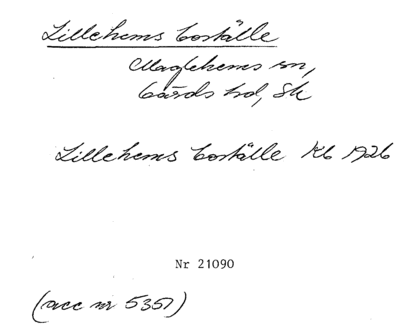 Lillehems boställe
Maglehems sn,
Gärds hd, Sk
Lillehems boställe Kb 1926
Nr 21090
(acc nr 5351)